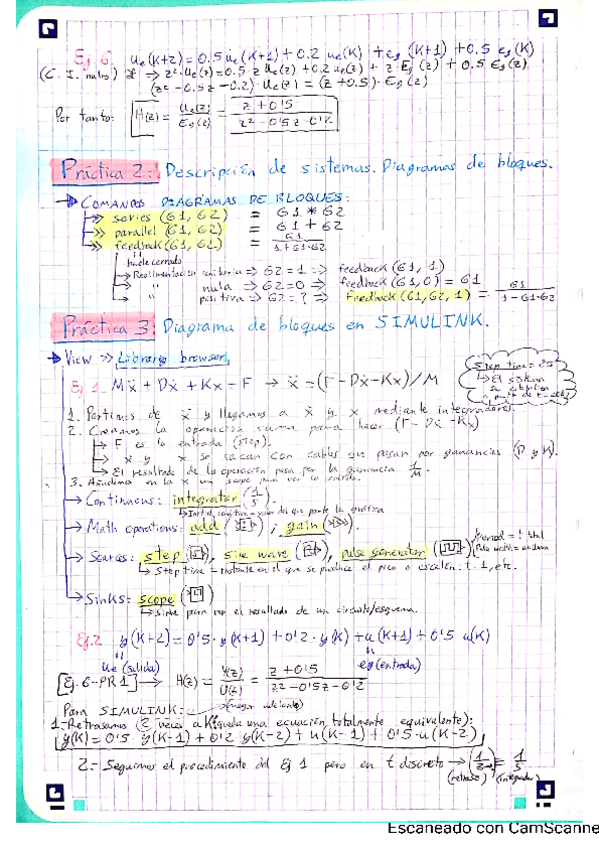 Ej 6. u_e(k+2) = 0.5 u_e(k+1) + 0.2 u_e(k) + e_g(k+1) + 0.5 e_g(k)
(C. I. nulas) ⇒ z²·U_e(z) = 0.5 z U_e(z) + 0.2 U_e(z) + z·E_g(z) + 0.5 E_g(z)
(z² - 0.5z - 0.2)·U_e(z) = (z + 0.5)·E_g(z)
Por tanto: H(z) = U_e(z)/E_g(z) = (z + 0'5)/(z² - 0'5z - 0'2)
Práctica 2: Descripción de sistemas. Diagramas de bloques.
→ COMANDOS DIAGRAMAS DE BLOQUES:
→ series (G1, G2) = G1 * G2
→ parallel (G1, G2) = G1 + G2
→ feedback (G1, G2) = G1/(1 + G1·G2)
bucle cerrado
→ Realimentación unitaria ⇒ G2 = 1 ⇒ feedback (G1, 1)
→ " nula ⇒ G2 = 0 ⇒ feedback (G1, 0) = G1
→ " positiva ⇒ G2 = ? ⇒ Feedback (G1, G2, 1) = G1/(1 - G1·G2)
Práctica 3: Diagrama de bloques en SIMULINK.
→ View >> Library browser
Step time = 
→ El sistema
Ej 1. Mẍ + Dẋ + Kx = F → ẍ = (F - Dẋ - Kx)/M
1. Partimos de ẍ y llegamos a ẋ y x mediante integradores.
2. Creamos la operación suma para hacer (F - Dẋ - Kx)
→ F es la entrada (step).
→ ẋ y x se sacan con cables que pasan por ganancias (D y K).
→ El resultado de la operación pasa por la ganancia 1/M.
3. Añadimos en la x un scope para ver la salida.
→ Continuous: integrator (1/s).
→ Math operations: add, gain
→ Sources: step, sine wave, pulse generator
→ Step time = instante en el que se produce el pico o escalón: t = 1, etc.
→ Sinks: scope
→ Sirve para ver el resultado de un circuito/esquema.
Ej. 2 y(k+2) = 0'5·y(k+1) + 0'2·y(k) + u(k+1) + 0'5 u(k)
u_e (salida) e_g (entrada)
[Ej. 6-PR 1] → H(z) = Y(z)/U(z) = (z + 0'5)/(z² - 0'5z - 0'2)
Para SIMULINK:
1- Retrasamos (2 veces a k) queda una ecuación totalmente equivalente):
y(k) = 0'5 y(k-1) + 0'2 y(k-2) + u(k-1) + 0'5·u(k-2)
2.- Seguimos el procedimiento del Ej 1 pero en t discreto → = 1/s
(retraso) (integrador)
Escaneado con CamScanne